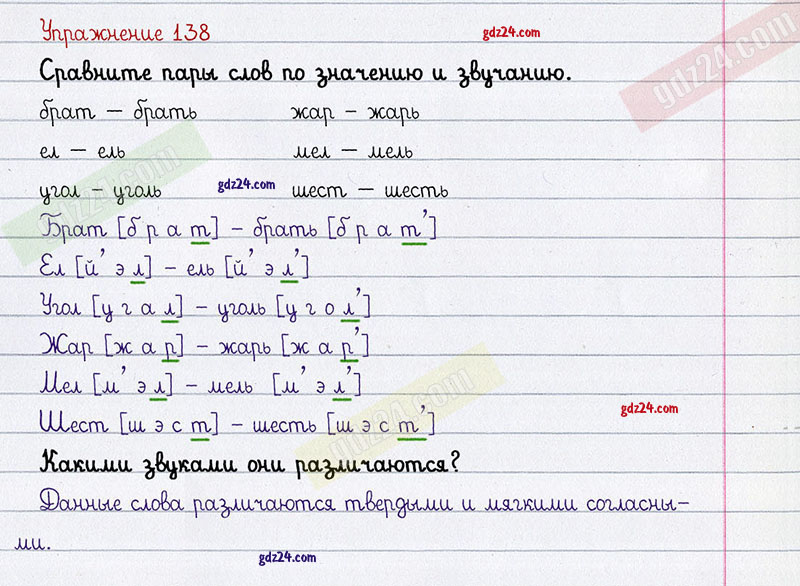 Упражнение 138 gdz24.com
Сравните пары слов по значению и звучанию.
gdz24.com
брат – брать жар – жарь
ел – ель мел – мель
gdz24.com
угол – уголь gdz24.com шест – шесть
Брат [б р а т] – брать [б р а т']
Ел [й' э л] – ель [й' э л']
Угол [у г а л] – уголь [у г о л']
Жар [ж а р] – жарь [ж а р']
Мел [м' э л] – мель [м' э л']
gdz24.com
gdz24.com
Шест [ш э с т] – шесть [ш э с т']
Какими звуками они различаются?
Данные слова различаются твердыми и мягкими согласны-
ми.
gdz24.com